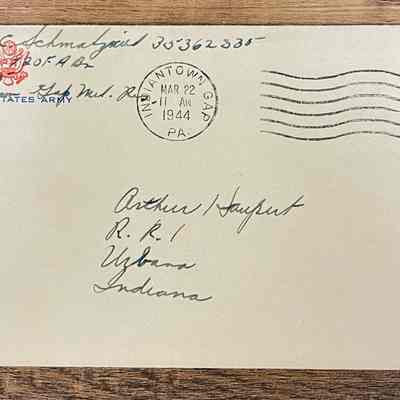 C Schmalzried 35362835
FA Bn
Gap Mil. Res
STATES ARMY
INDIANTOWN GAP
MAR 22
11 AM
1944
PA.
Arthur Haupert
R. R. 1
Urbana
Indiana